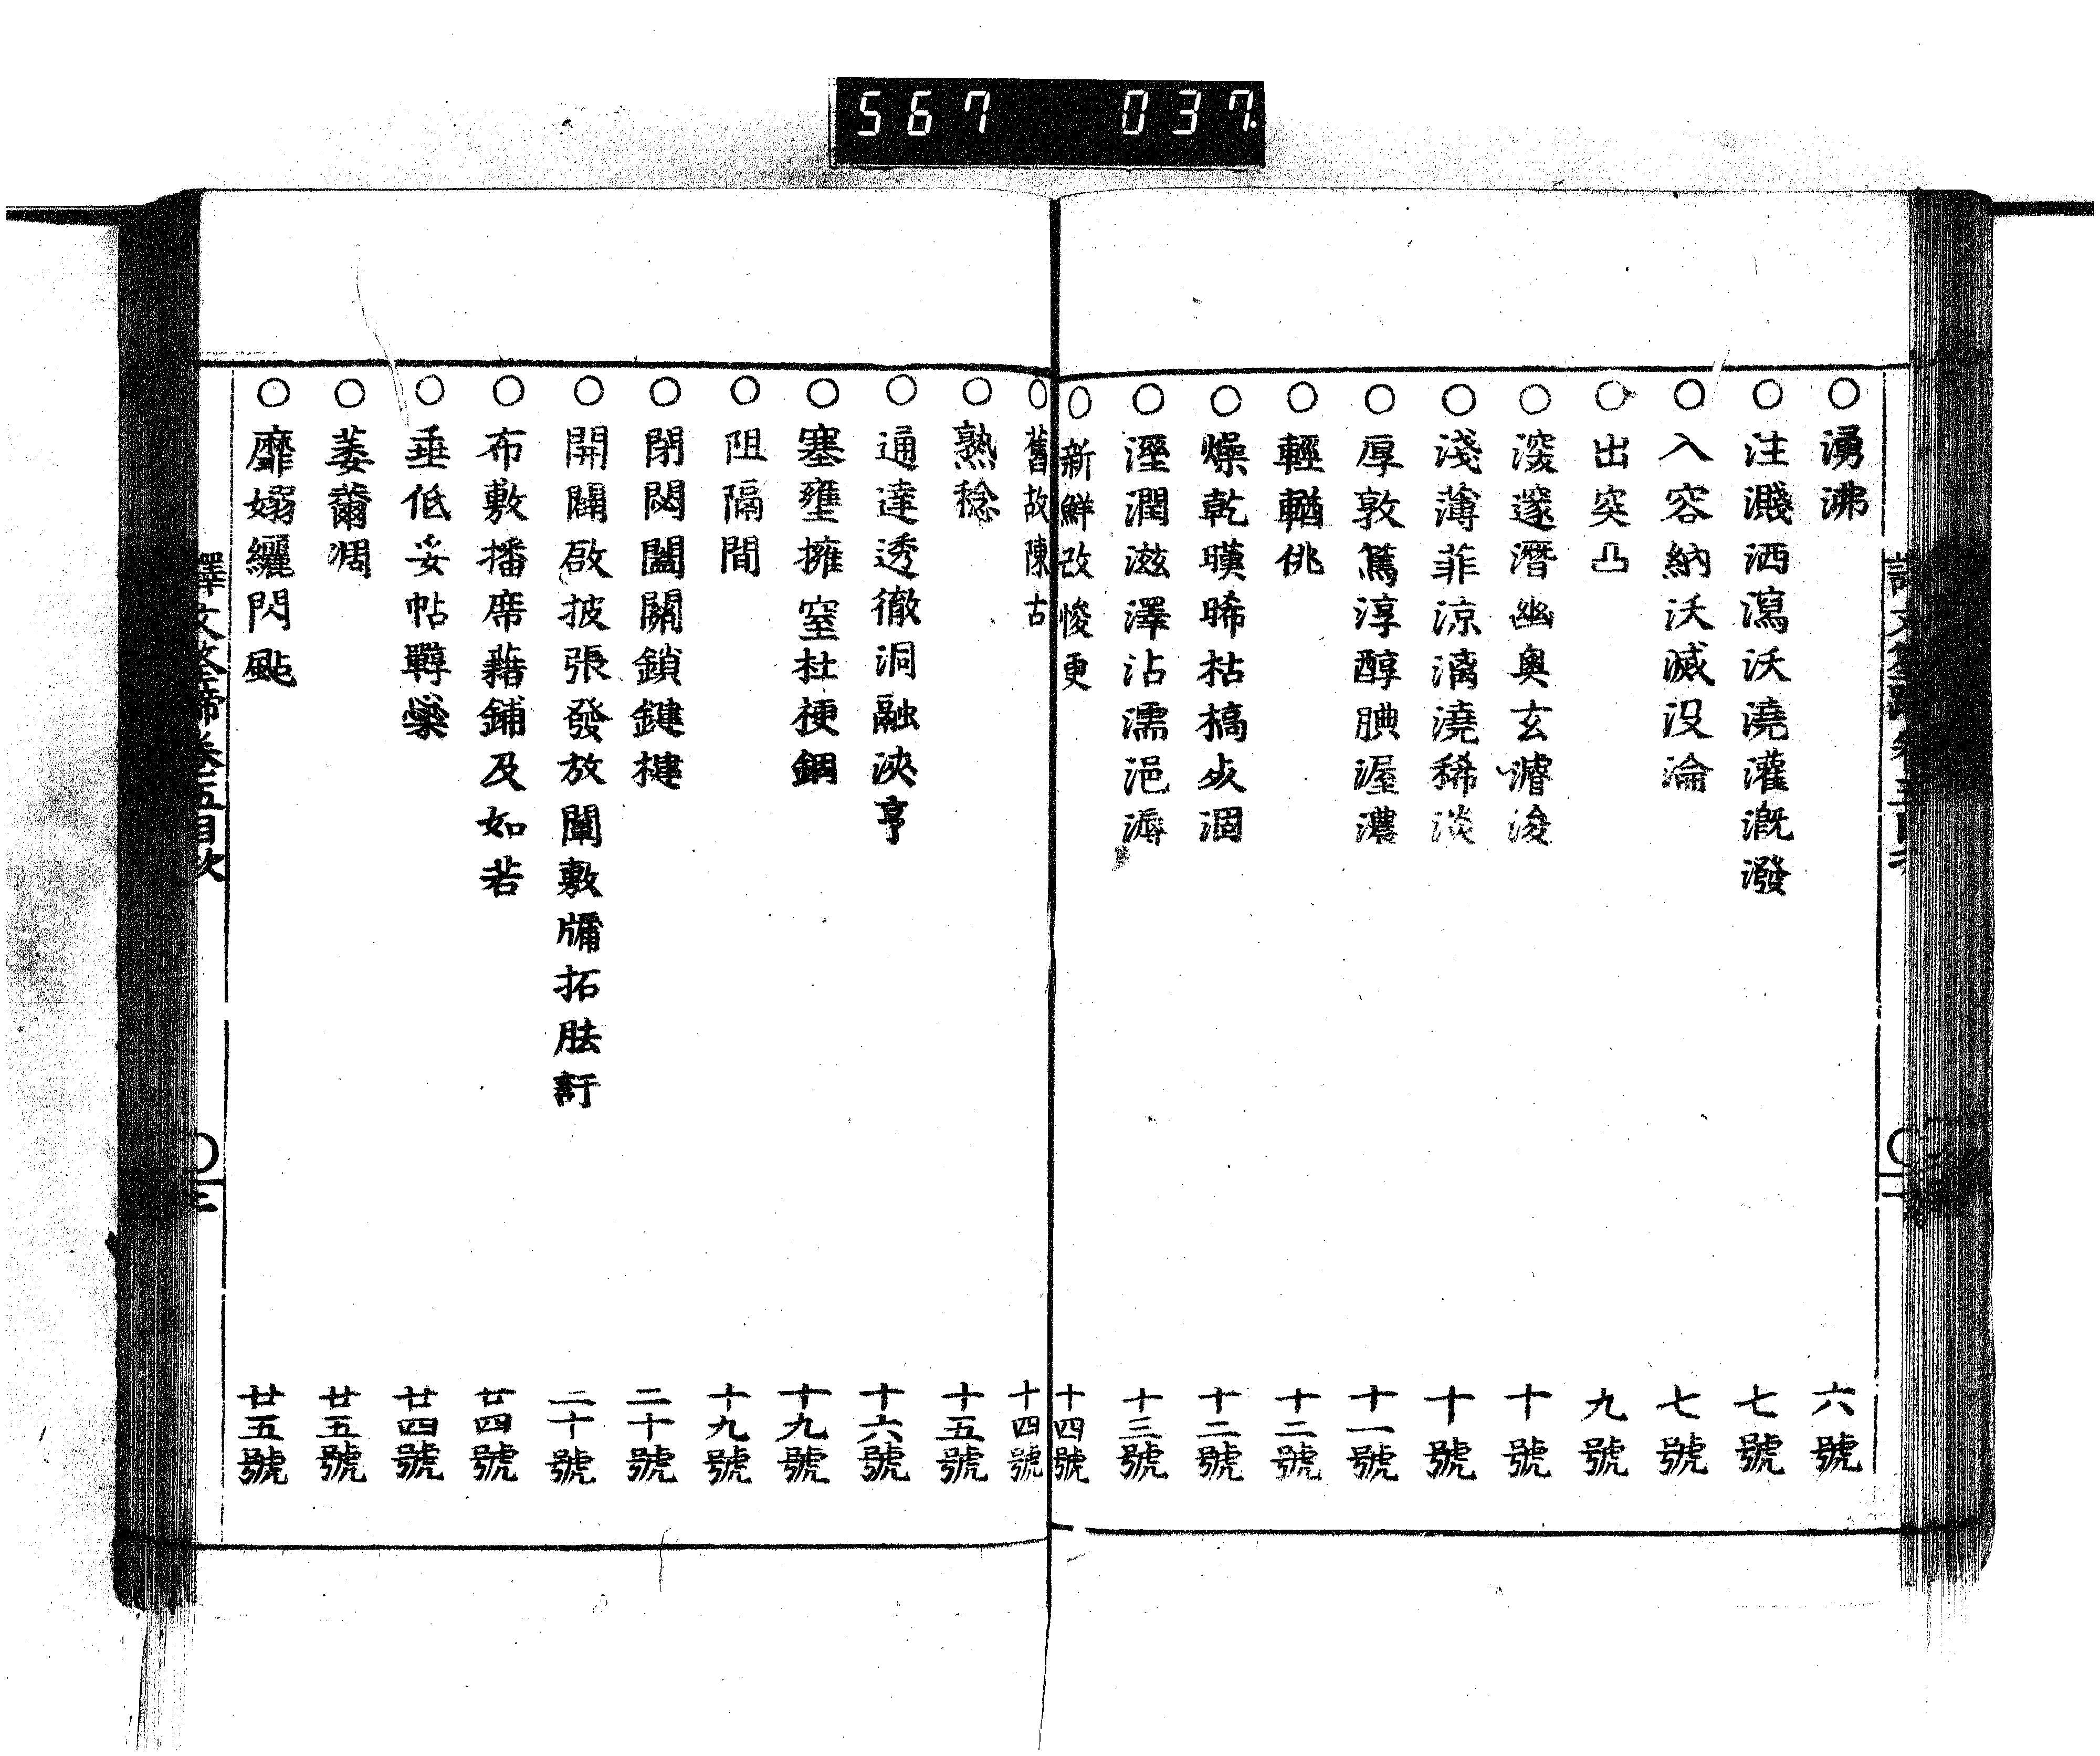 567 037.
○湧沸 六號
○注濺洒瀉沃澆灌漑潑 七號
○入容納沃滅沒淪 七號
○出突凸 九號
○深邃潛幽奧玄濬浚 十號
○淺薄菲涼漓澆稀淡 十號
○厚敦篤淳醇腆渥濃 十一號
○輕輶佻 十二號
○燥乾暵晞枯槁 涸 十二號
○溼潤滋澤沾濡浥溽 十三號
○新鮮改悛更 十四號
○舊故陳古 十四號
○熟稔 十五號
○通達透徹洞融浹亨 十六號
○塞壅擁窒杜梗錮 十九號
○阻隔間 十九號
○閉閟闔關鎖鍵楗 二十號
○開闢啟披張發放闡敷牖拓胠 二十號
○布敷播席藉鋪及如若 廿四號
○垂低妥帖嚲 廿四號
○萎薾凋 廿五號
○靡嫋纚閃颭 廿五號
譯文筌蹄卷五目次 ○三